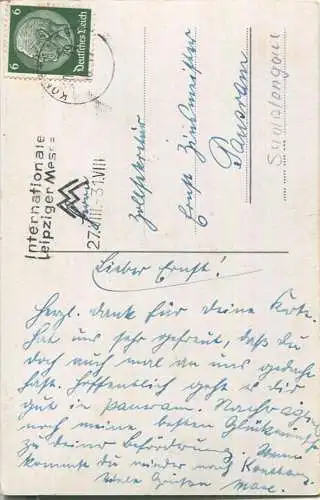 6 Deutsches Reich 6
Internationale
Leipziger Messe
27.VIII.-31.VIII
Ernst
Pausram
Sudetengau
Lieber Ernst!
Herzl. Dank für Deine Karte.
Hat uns sehr gefreut, daß du
doch auch mal an uns gedacht
hast. Hoffentlich geht es dir
gut in Pausram. Nachträglich
noch meine besten Glückwünsche
zu deiner Beförderung. Wann
kommst du wieder nach Konstanz.
Viele Grüßen